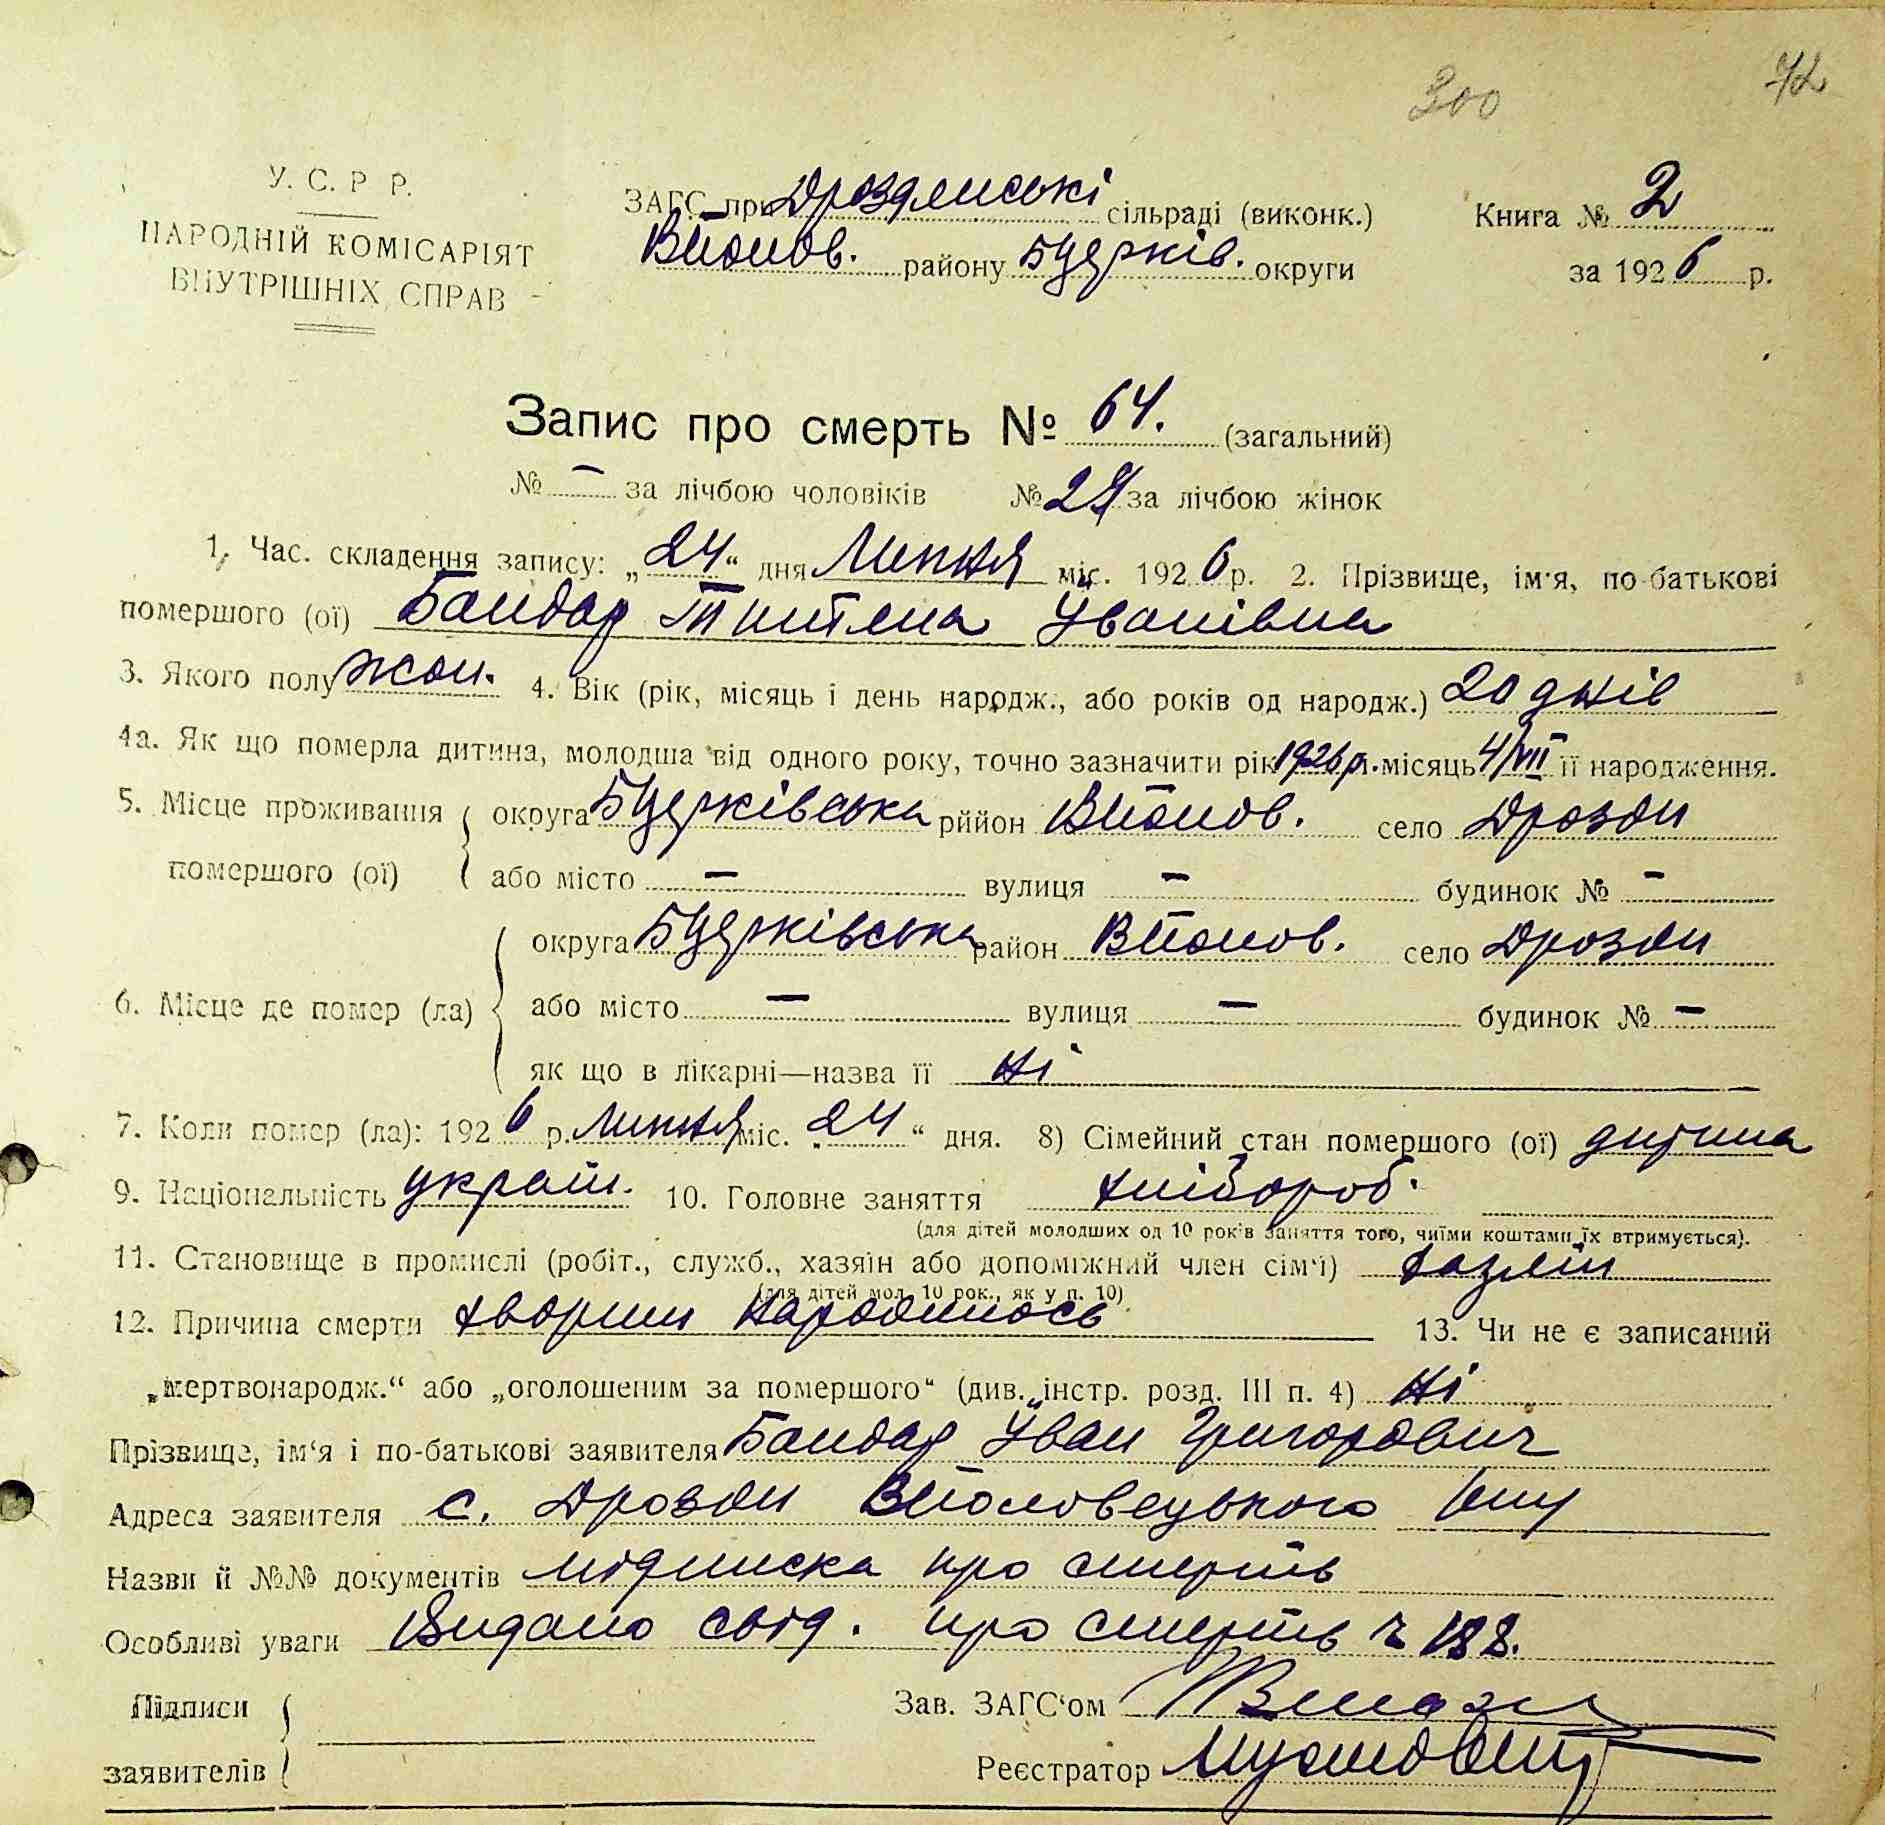 300 72
У. С. Р Р.
НАРОДНІЙ КОМІСАРІЯТ
ВНУТРІШНІХ СПРАВ
ЗАГС при Дроздянські сільраді (виконк.) Книга № 2
ВПолов. району БЦерків. округи за 1926 р.
Запис про смерть № 64. (загальний)
№ — за лічбою чоловіків № 27 за лічбою жінок
1. Час. складення запису: „24“ дня Липня міс. 1926 р. 2. Прізвище, ім‘я, по-батькові
помершого (ої) Бондар Титяна Іванівна
3. Якого полу жон. 4. Вік (рік, місяць і день народж., або років од народж.) 20 днів
4а. Як що померла дитина, молодша від одного року, точно зазначити рік 1926 р. місяць 4/VII її народження.
5. Місце проживання округа БЦерківська рййон ВПолов. село Дрозди
помершого (ої) або місто — вулиця — будинок № —
округа БЦерківська район ВПолов. село Дрозди
6. Місце де помер (ла) або місто — вулиця — будинок № —
як що в лікарні—назва її Ні
7. Коли помер (ла): 1926 р. Липня міс. „24“ дня. 8) Сімейний стан помершого (ої) дитина
9. Національність україн. 10. Головне заняття хлібороб.
(для дітей молодших од 10 років заняття того, чиїми коштами їх втримується).
11. Становище в промислі (робіт., служб., хазяїн або допоміжний член сім‘ї) хазяїн
(для дітей мол. 10 рок., як у п. 10)
12. Причина смерти хворим народилось 13. Чи не є записаний
„мертвонародж.“ або „оголошеним за помершого“ (див. інстр. розд. III п. 4) Ні
Прізвище, ім‘я і по-батькові заявителя Бондар Іван Григорович
Адреса заявителя с. Дрозди ВПоловецького
Назви й №№ документів підписка про смерть
Особливі уваги Видано свід. про смерть ч 188.
Підписи Зав. ЗАГС‘ом
заявителів Реєстратор